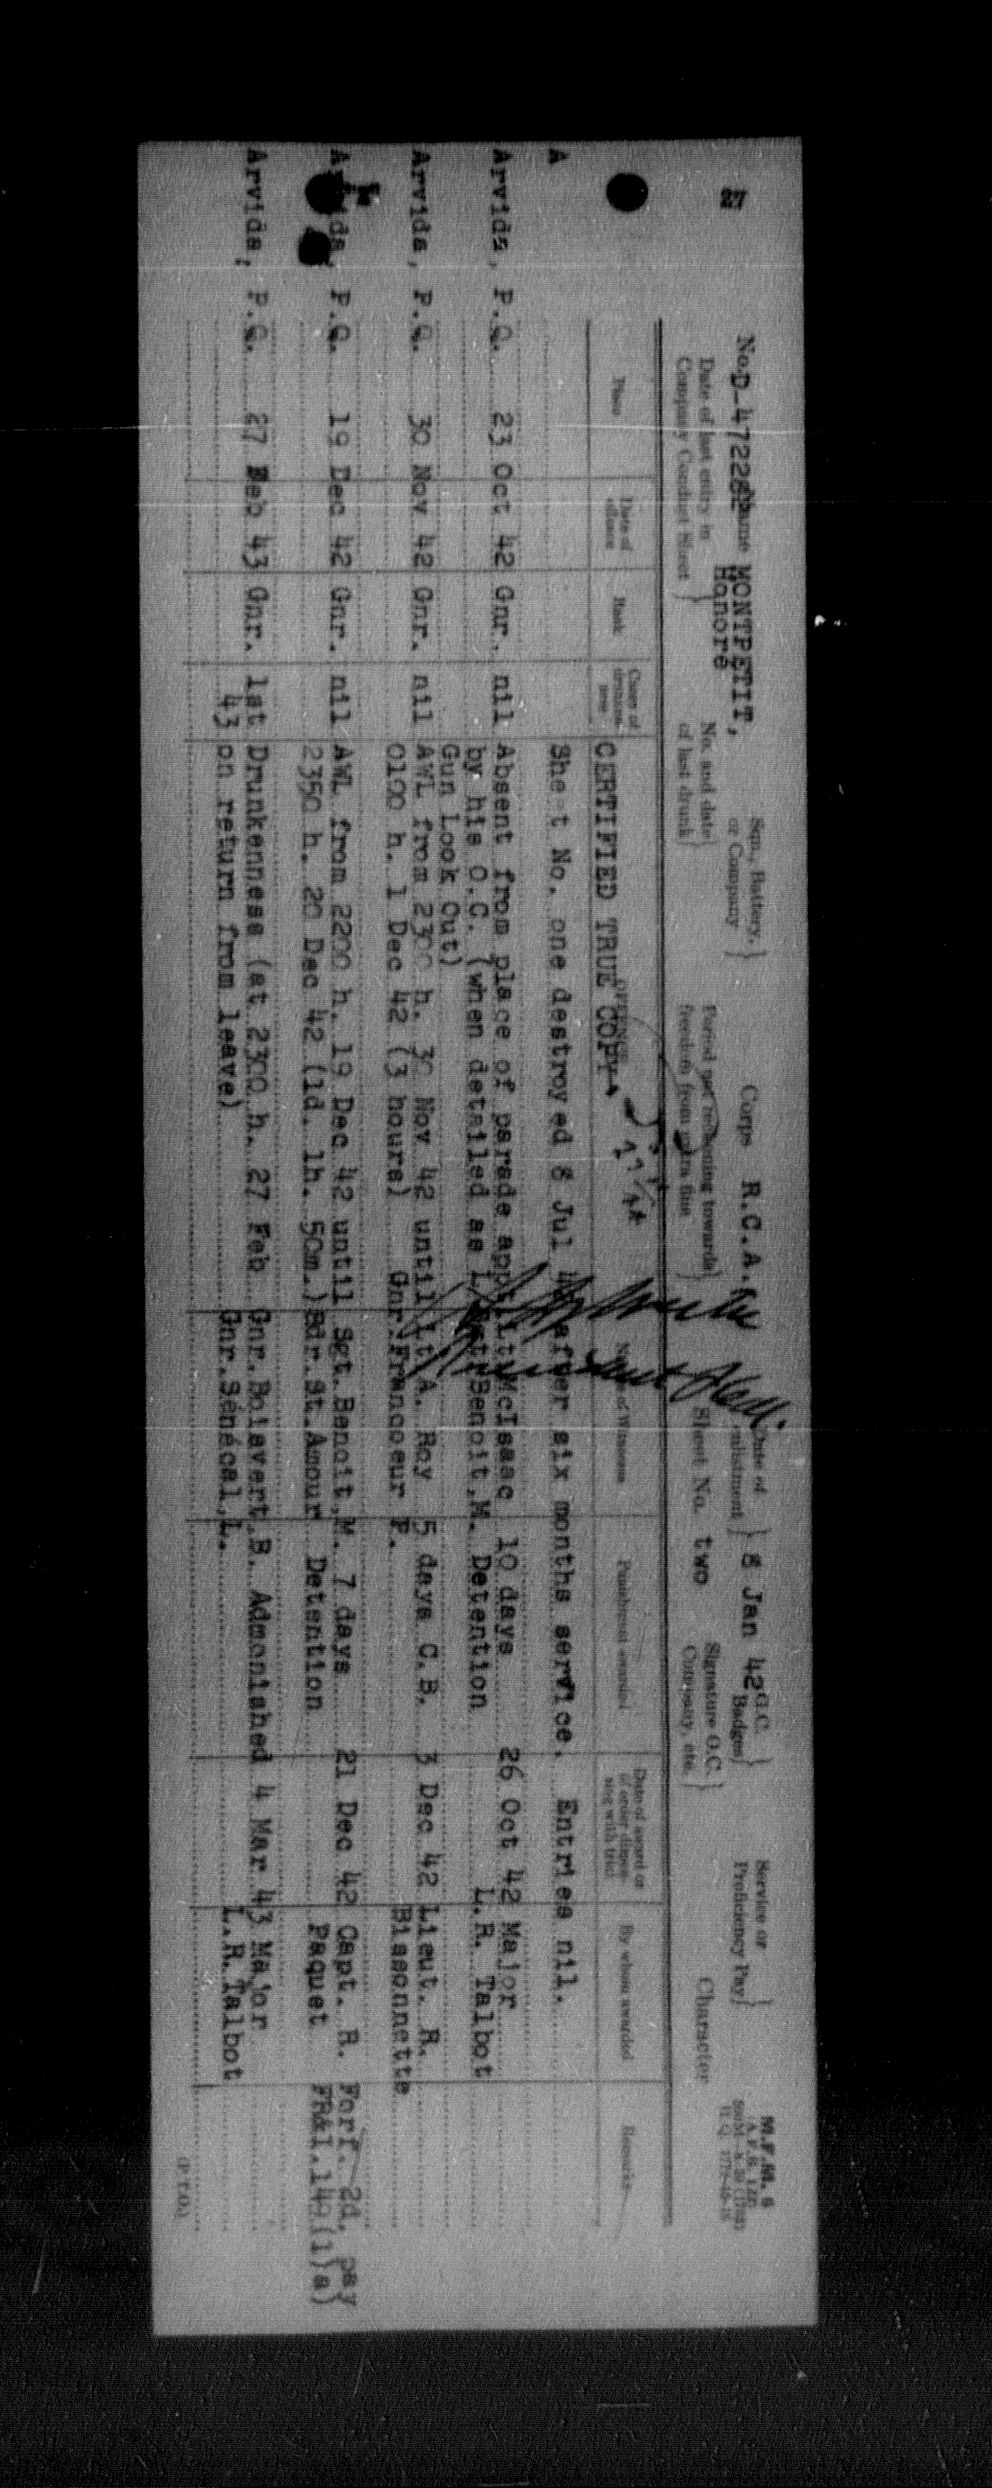 27
M.F.M. 6
No. D-472282 Name MONTPETIT, Honore
Sqn., Battery, or Company
Corps R.C.A.
Date of enlistment 8 Jan 42
G.C. Badges
Service or Proficiency Pay
Date of last entry in Company Conduct Sheet
No. and date of last drunk
Period not reckoning towards freedom from extra fine
Sheet No. two
Signature O.C. Company, etc.
Character
Place
Date of offence
Rank
Cases of drunkenness
OFFENCE
Names of Witnesses
Punishment awarded
Date of award or of order dispensing with trial
By whom awarded
Remarks
CERTIFIED TRUE COPY.
A
Sheet No. one destroyed 8 Jul 42 after six months service. Entries nil.
Arvida, P.Q. 23 Oct 42 Gnr. nil Absent from place of parade appt. Lt. McIsaac 10 days 26 Oct 42 Major
by his O.C. (when detailed as Benoit, M. Detention L.R. Talbot
Gun Look Out)
Arvida, P.Q. 30 Nov 42 Gnr. nil AWL from 2300 h. 30 Nov 42 until Lt A. Roy 5 days C.B. 3 Dec 42 Lieut. R.
0100 h. 1 Dec 42 (3 hours) Gnr. Francoeur F. Bissonnette
Arvida, P.Q. 19 Dec 42 Gnr. nil AWL from 2200 h. 19 Dec 42 until Sgt. Benoit, M. 7 days 21 Dec 42 Capt. R. Forf. 2d. pay
2350 h. 20 Dec 42 (1d. 1h. 50m.) Bdr. St. Amour Detention Paquet FR&I. 149(1)a)
Arvida, P.Q. 27 Feb 43 Gnr. 1st Drunkenness (at 2300 h. 27 Feb Gnr. Boisvert, B. Admonished 4 Mar 43 Major
43 on return from leave) Gnr. Sénécal, L. L.R. Talbot
(P.T.O.)